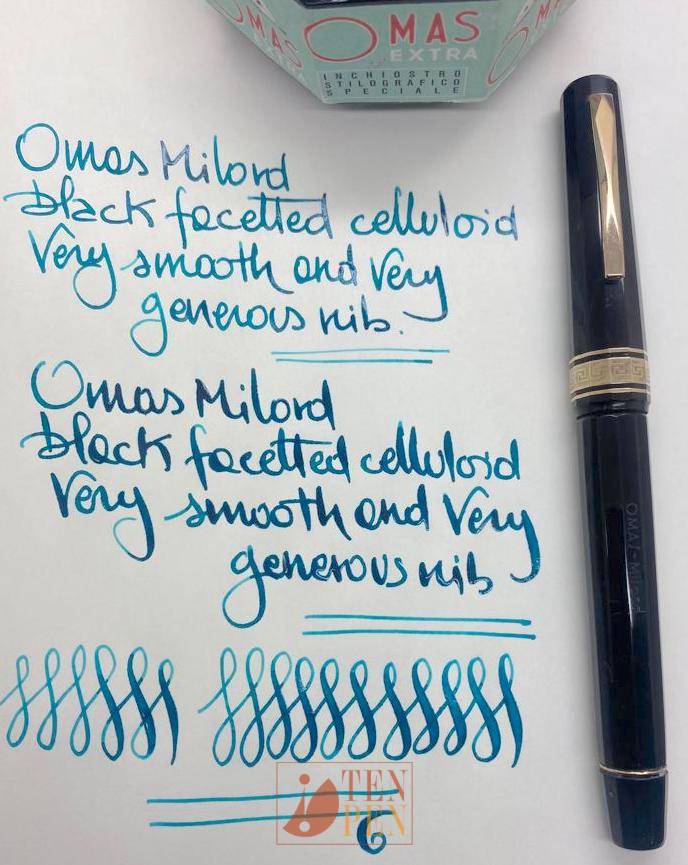 OMAS
EXTRA
INCHIOSTRO
STILOGRAFICO
SPECIALE
Omas Milord
black facetted celluloid
Very smooth and Very
generous nib.
Omas Milord
black facetted celluloid
Very smooth and Very
generous nib
OMAS-Milord
TEN
PEN